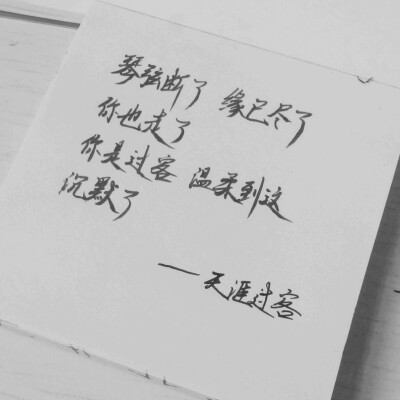 琴弦断了 缘已尽了
你也走了
你是过客 温柔到这
沉默了
——天涯过客